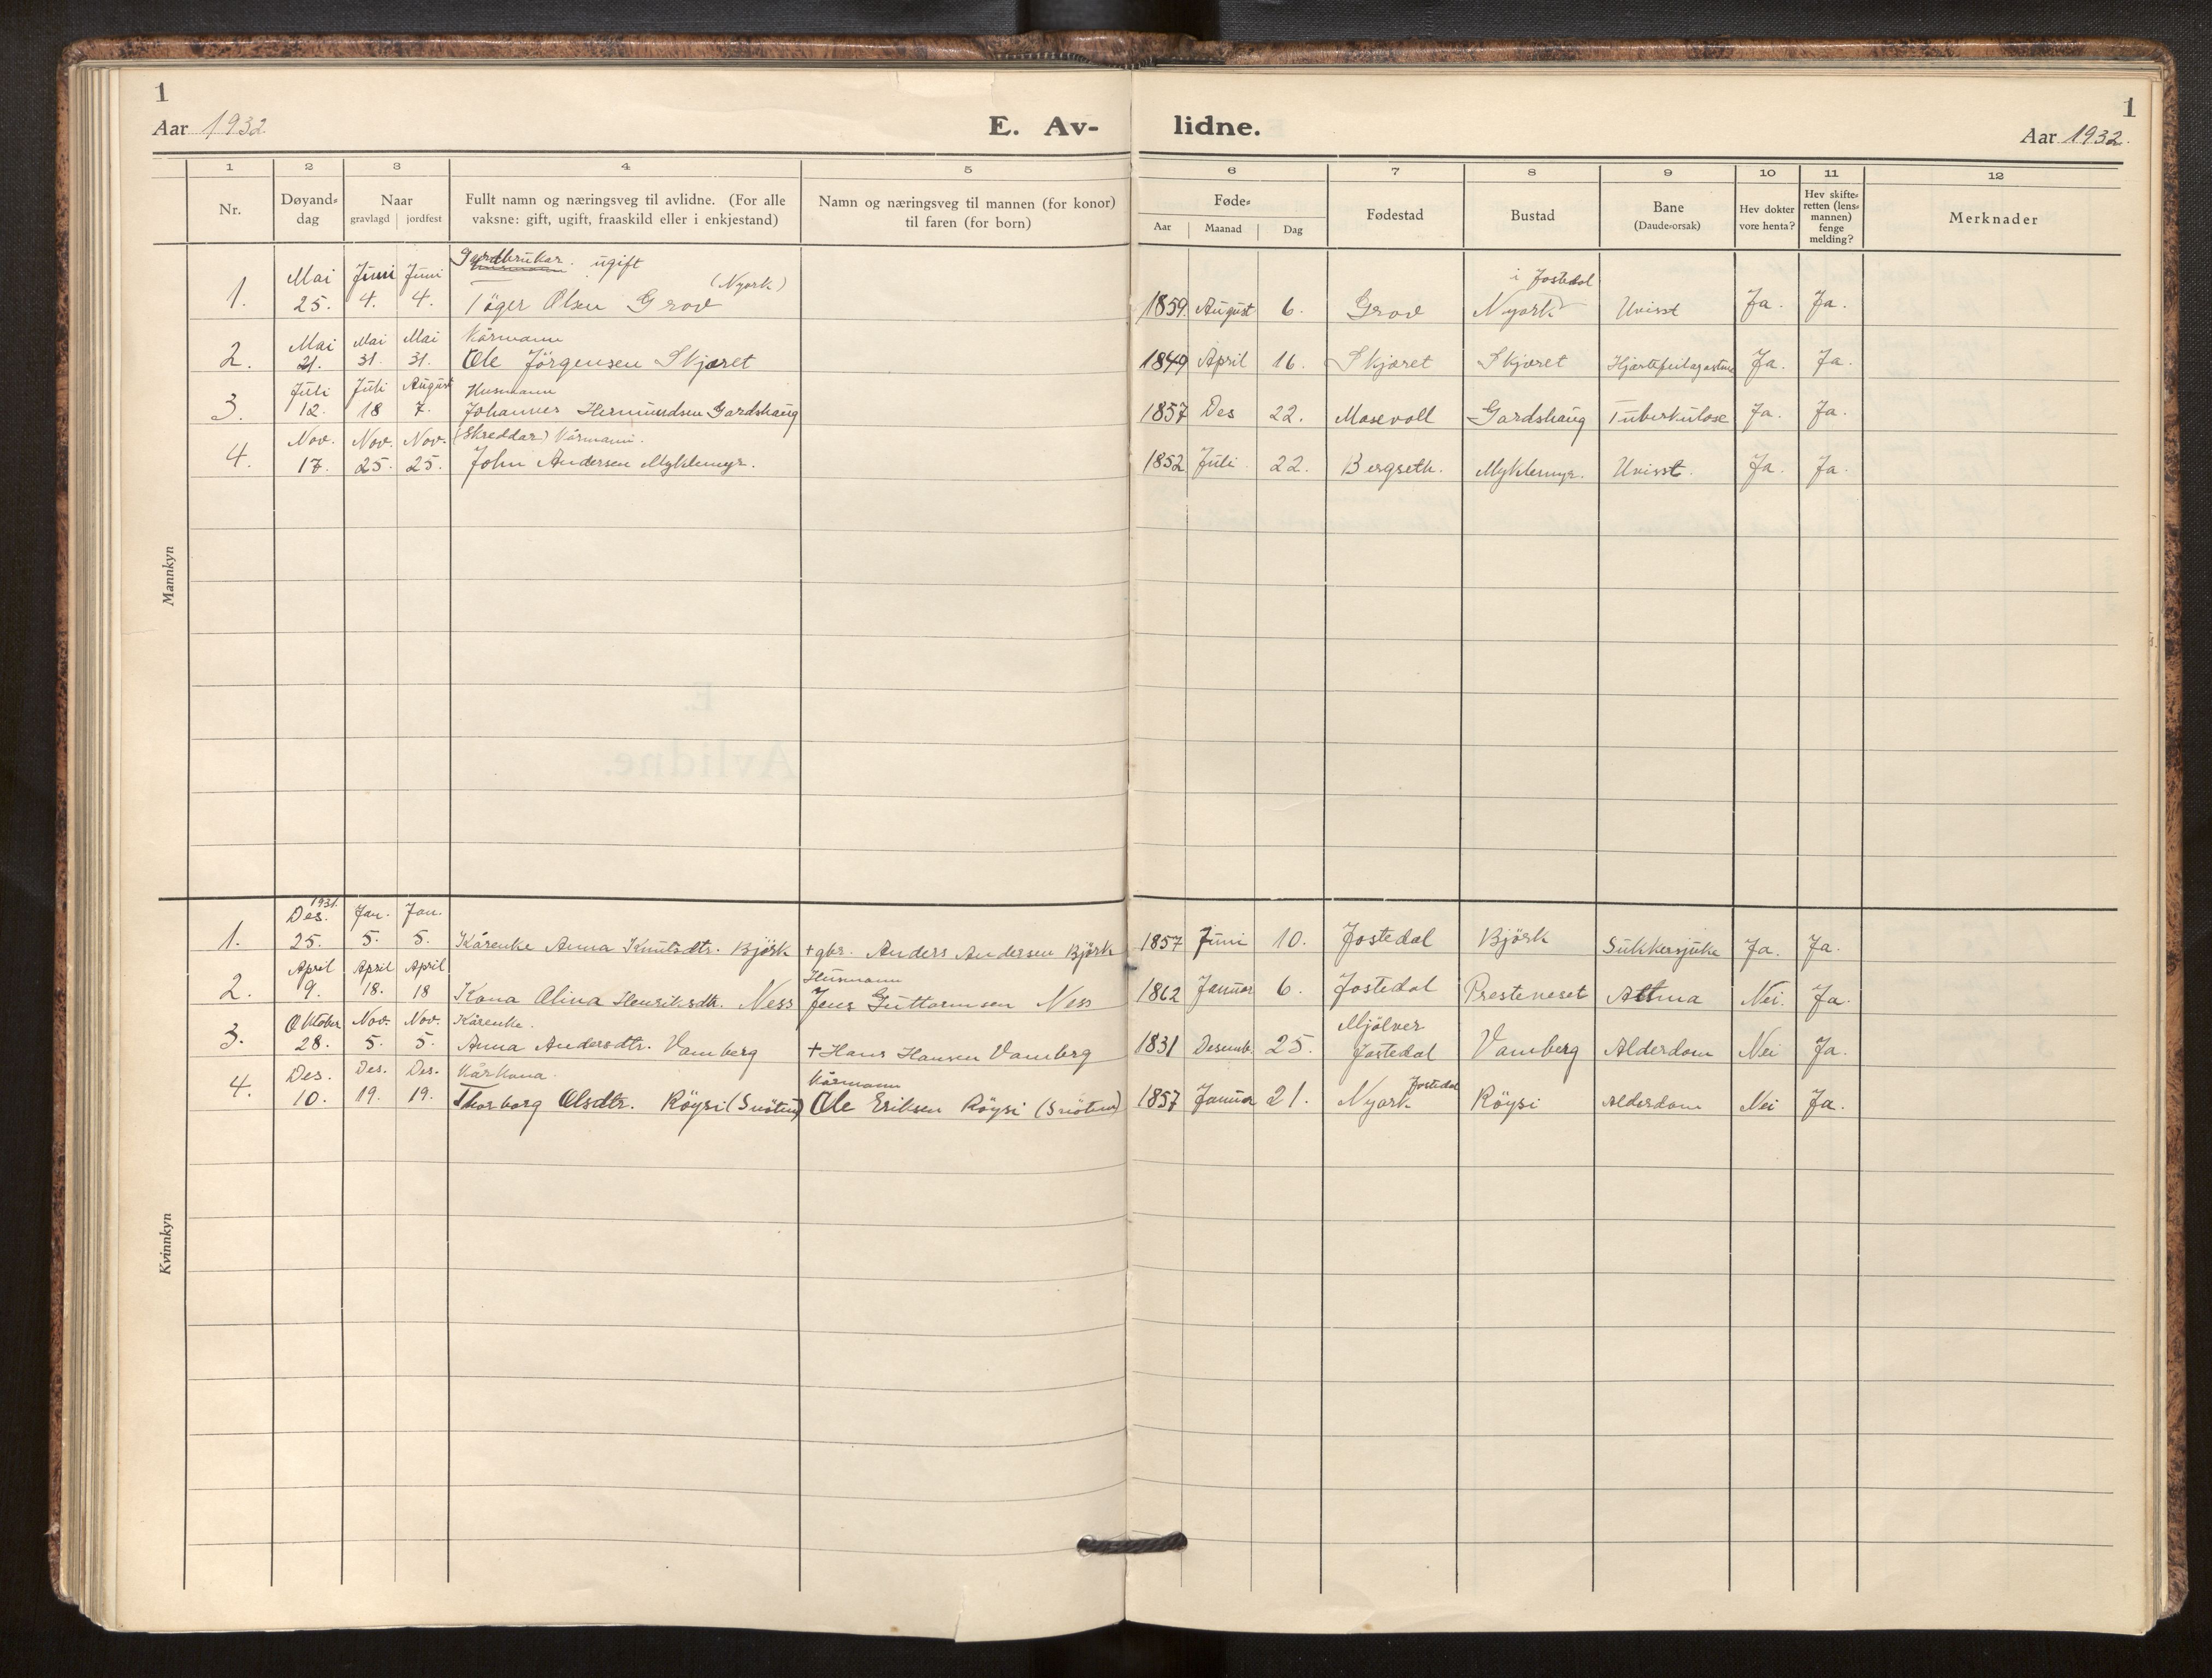 1
1
Aar 1932
E. Av-
lidne.
Aar 1932.
1 2 3 4 5 6 7 8 9 10 11 12
Nr.
Døyand-
dag
Naar
gravlagd jordfest
Fullt namn og næringsveg til avlidne. (For alle
vaksne: gift, ugift, fraaskild eller i enkjestand)
Namn og næringsveg til mannen (for konor)
til faren (for born)
Føde-
Aar Maanad Dag
Fødestad
Bustad
Bane
(Daude-orsak)
Hev dokter
vore henta?
Hev skifte-
retten (lens-
mannen)
fenge
melding?
Merknader
Mannkyn
Gardbrukar. ugift
Mai Juni Juni (Nyørk) i Jostedal
1. 25. 4. 4. Tøger Olsen Grov 1859 August 6. Grov Nyørk Uvisst Ja. Ja.
Mai Mai Mai Kårmann
2. 21. 31. 31. Ole Jörgensen Skjæret 1849 April 16. Skjæret Skjæret Ja. Ja.
Juli Juli August Husmann
3. 12. 18 7. Johannes Hermundsen Gardshaug 1857 Des 22. Mosevoll Gardshaug Tuberkulose Ja. Ja.
Nov. Nov. Nov. (Skreddar) Kårmann.
4. 17. 25. 25. John Andersen Myklemyr. 1852 Juli 22. Bergseth. Myklemyr. Uvisst. Ja. Ja.
Kvinnkyn
1931.
Des. Jan. Jan.
1. 25. 5. 5. Kårenke Anna Knutsdtr. Björk + gbr. Anders Andersen Björk 1857 Juni 10. Jostedal Björk Sukkersjuke Ja. Ja.
April April April Husmann
2. 9. 18. 18 Kona Olina Henriksdtr. Ness Jens Guttormsen Ness 1862 Januar 6. Jostedal Presteneset Attma Nei. Ja.
Oktober Nov. Nov. Kårenke. Mjölver
3. 28. 5. 5. Anna Andersdtr. Vamberg + Hans Hansen Vamberg 1831 Desemb. 25. Jostedal Vamberg Alderdom Nei Ja.
Des. Des. Des. Kårkona. Kårmann Jostedal
4. 10. 19. 19. Thorborg Olsdtr. Röysi (Snötun) Ole Eriksen Röysi (Snötun) 1857 Januar 21. Nyørk Röysi Alderdom Nei Ja.